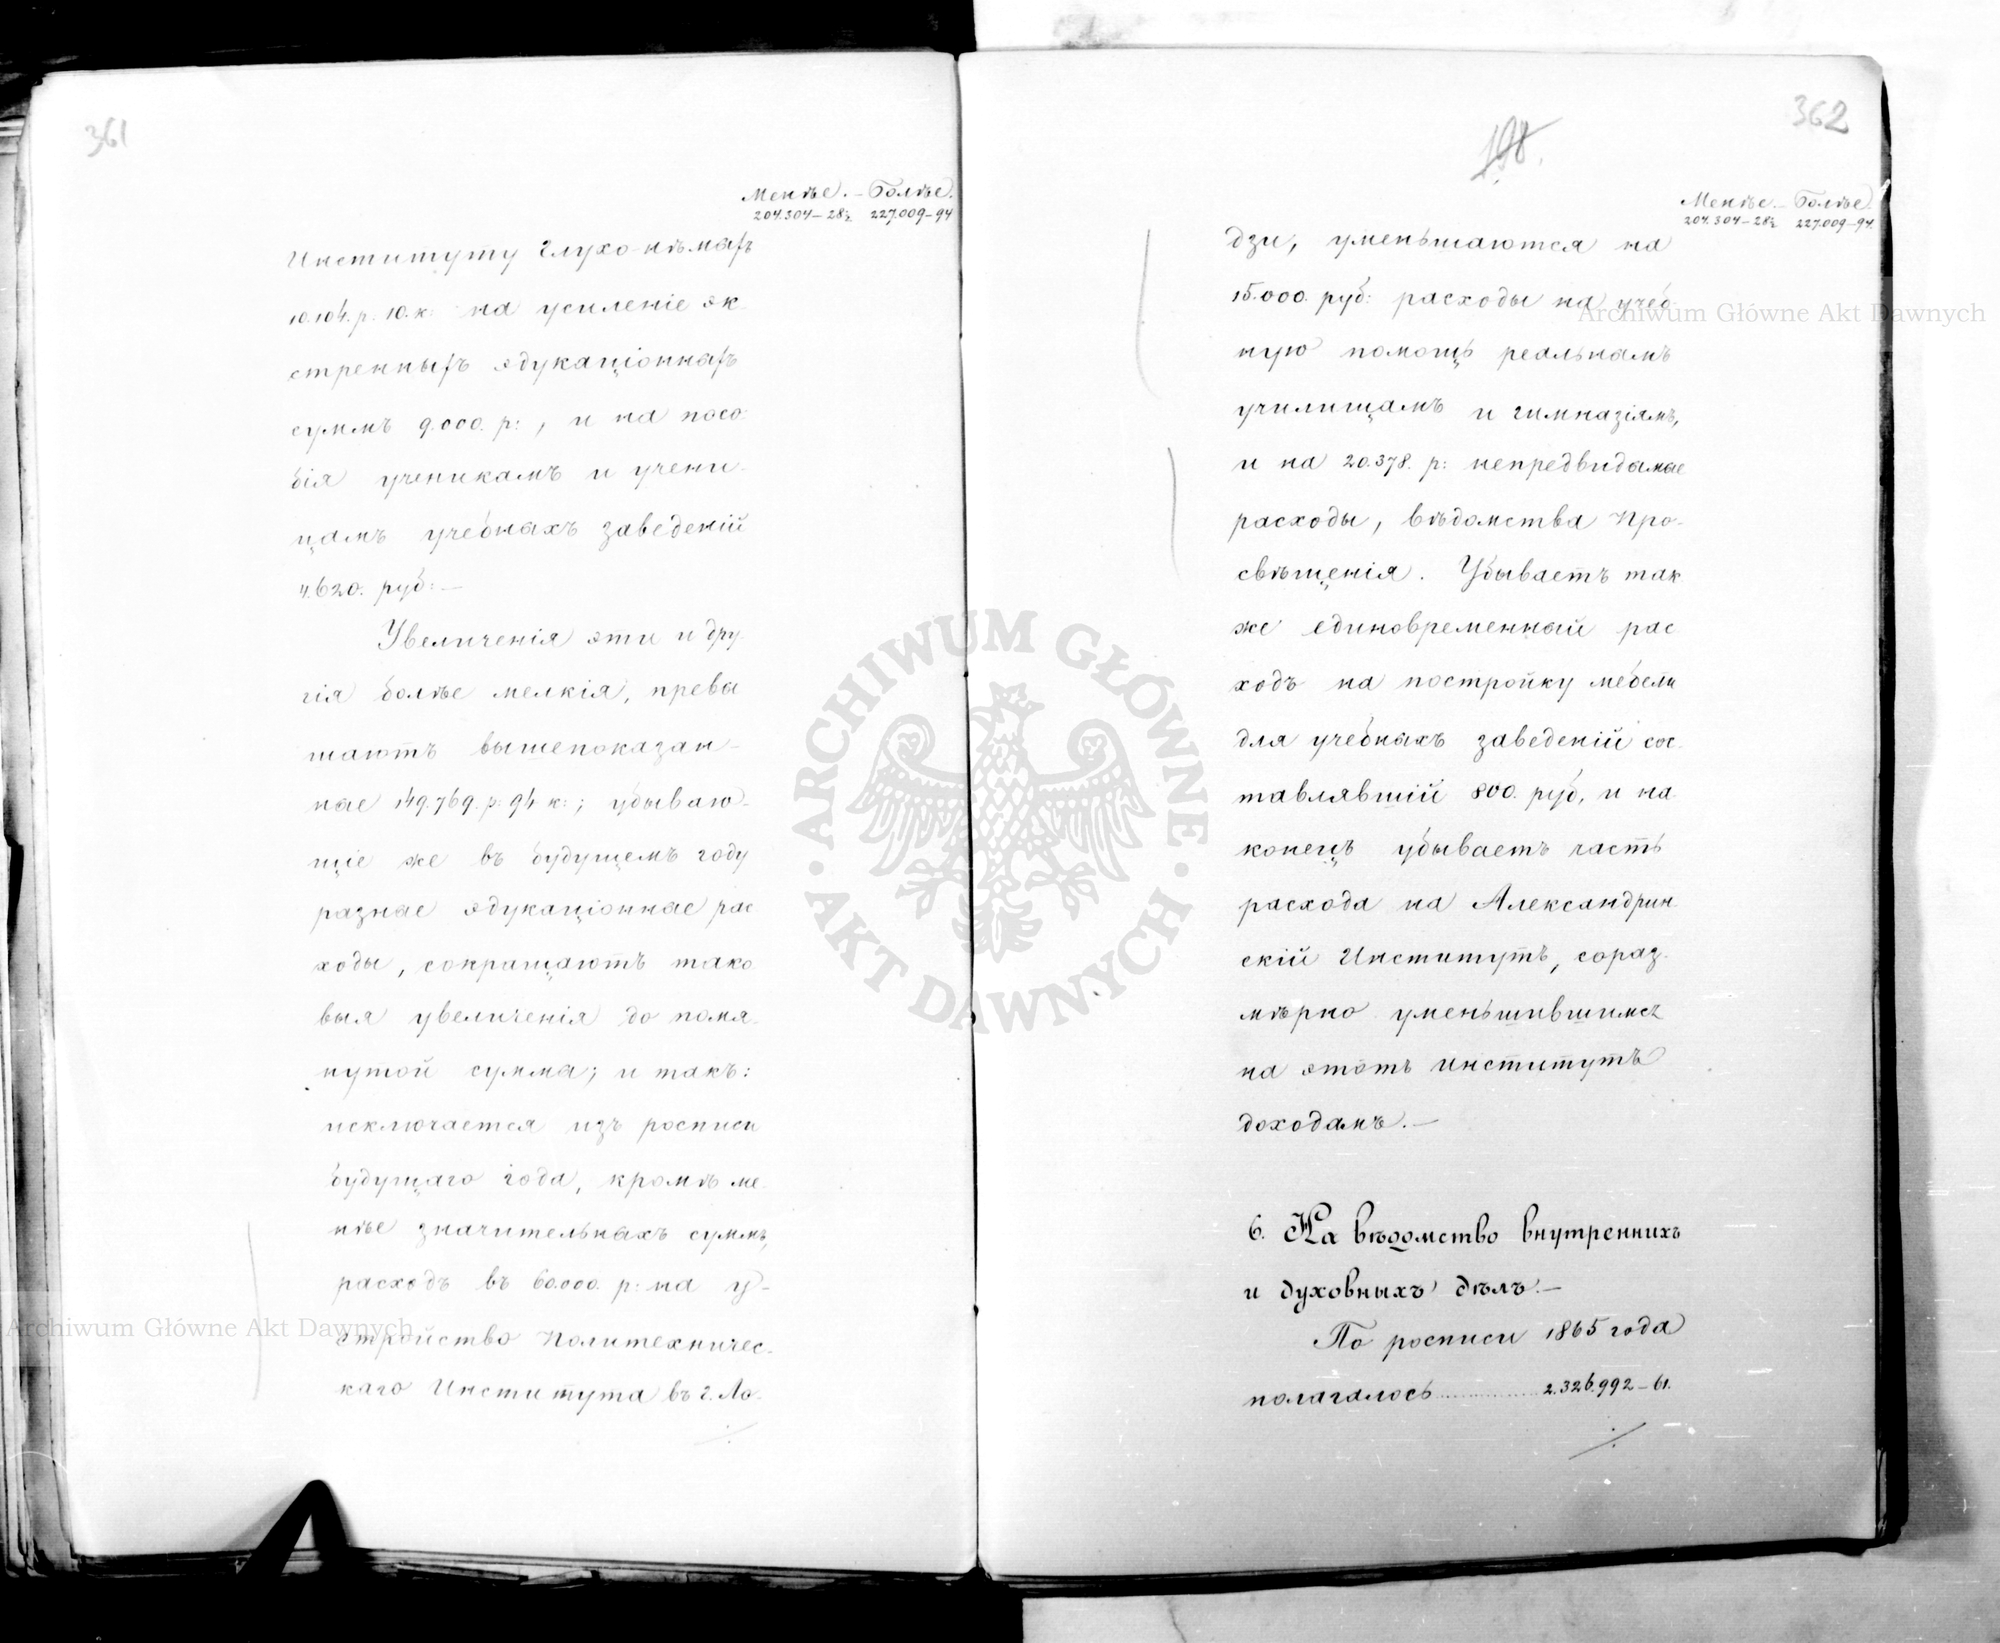 361
Менѣе. – Болѣе.
204.304–28½ 227.009–94
Институту Глухо-нѣмыхъ
10.104. р. 10. к. на усиленіе эк-
стренныхъ эдукаціонныхъ
суммъ 9.000. р:, и на посо-
бія ученикамъ и учени-
цамъ учебныхъ заведеній
4.620. руб: —
Увеличенія эти и дру-
гія болѣе мелкія, превы
шаютъ вышепоказан-
ные 149.769. р: 94 к:; убываю-
щіе же въ будущемъ году
разные эдукаціонные рас
ходы, сокращаютъ тако
выя увеличенія до помя-
нутой суммы; и такъ:
исключается изъ росписи
будущаго года, кромѣ ме-
нѣе значительныхъ суммъ,
расходъ въ 60.000. р: на у-
стройство Политехничес-
каго Института въ г. Ло-
362
198.
Менѣе. – Болѣе.
204.304–28½ 227.009–94.
дзи, уменьшаются на
15.000. руб: расходы на учеб
ную помощь реальнымъ
училищамъ и гимназіямъ,
и на 20.378. р: непредвидимые
расходы, вѣдомства Про-
свѣщенія. Убываетъ так
же единовременный рас
ходъ на постройку мебели
для учебныхъ заведеній сос-
тавлявшій 800. руб, и на
конецъ убываетъ часть
расхода на Александрин-
скій Институтъ, сораз-
мѣрно уменьшившимся
на этотъ институтъ
доходамъ. —
6. На вѣдомство внутреннихъ
и духовныхъ дѣлъ. —
По росписи 1865 года
полагалось ........ 2.326.992–61.
Archiwum Główne Akt Dawnych
Archiwum Główne Akt Dawnych
ARCHIWUM GŁÓWNE · AKT DAWNYCH ·